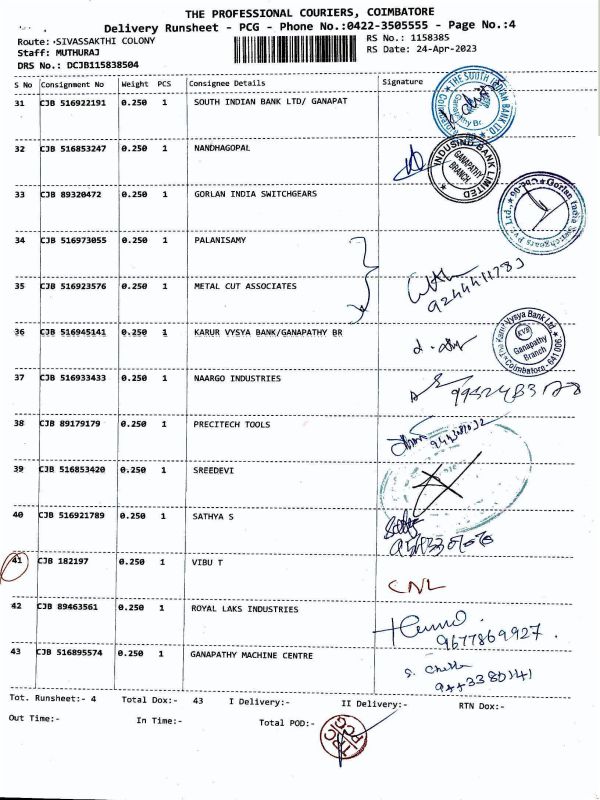 THE PROFESSIONAL COURIERS, COIMBATORE
Delivery Runsheet - PCG - Phone No.:0422-3505555 - Page No.:4
Route: SIVASSAKTHI COLONY
RS No.: 1158385
Staff: MUTHURAJ
RS Date: 24-Apr-2023
DRS No.: DCJB115838504
S No Consignment No Weight PCS Consignee Details Signature
31 CJB 516922191 0.250 1 SOUTH INDIAN BANK LTD/ GANAPAT
THE SOUTH INDIAN BANK LTD.
Ganapathy Br.
32 CJB 516853247 0.250 1 NANDHAGOPAL
INDUSIND BANK LIMITED
GANAPATHY
BRANCH
33 CJB 89320472 0.250 1 GORLAN INDIA SWITCHGEARS
Gorlan India Switchgears Pvt. Ltd.,
34 CJB 516973055 0.250 1 PALANISAMY
35 CJB 516923576 0.250 1 METAL CUT ASSOCIATES
36 CJB 516945141 0.250 1 KARUR VYSYA BANK/GANAPATHY BR
The Karur Vysya Bank Ltd.
KVB
Ganapathy
Branch
Coimbatore - 641 006
37 CJB 516933433 0.250 1 NAARGO INDUSTRIES
38 CJB 89179179 0.250 1 PRECITECH TOOLS
39 CJB 516853420 0.250 1 SREEDEVI
40 CJB 516921789 0.250 1 SATHYA S
41 CJB 182197 0.250 1 VIBU T
CNL
42 CJB 89463561 0.250 1 ROYAL LAKS INDUSTRIES
9677869927.
43 CJB 516895574 0.250 1 GANAPATHY MACHINE CENTRE
Tot. Runsheet:- 4 Total Dox:- 43 I Delivery:- II Delivery:- RTN Dox:-
Out Time:- In Time:- Total POD:-